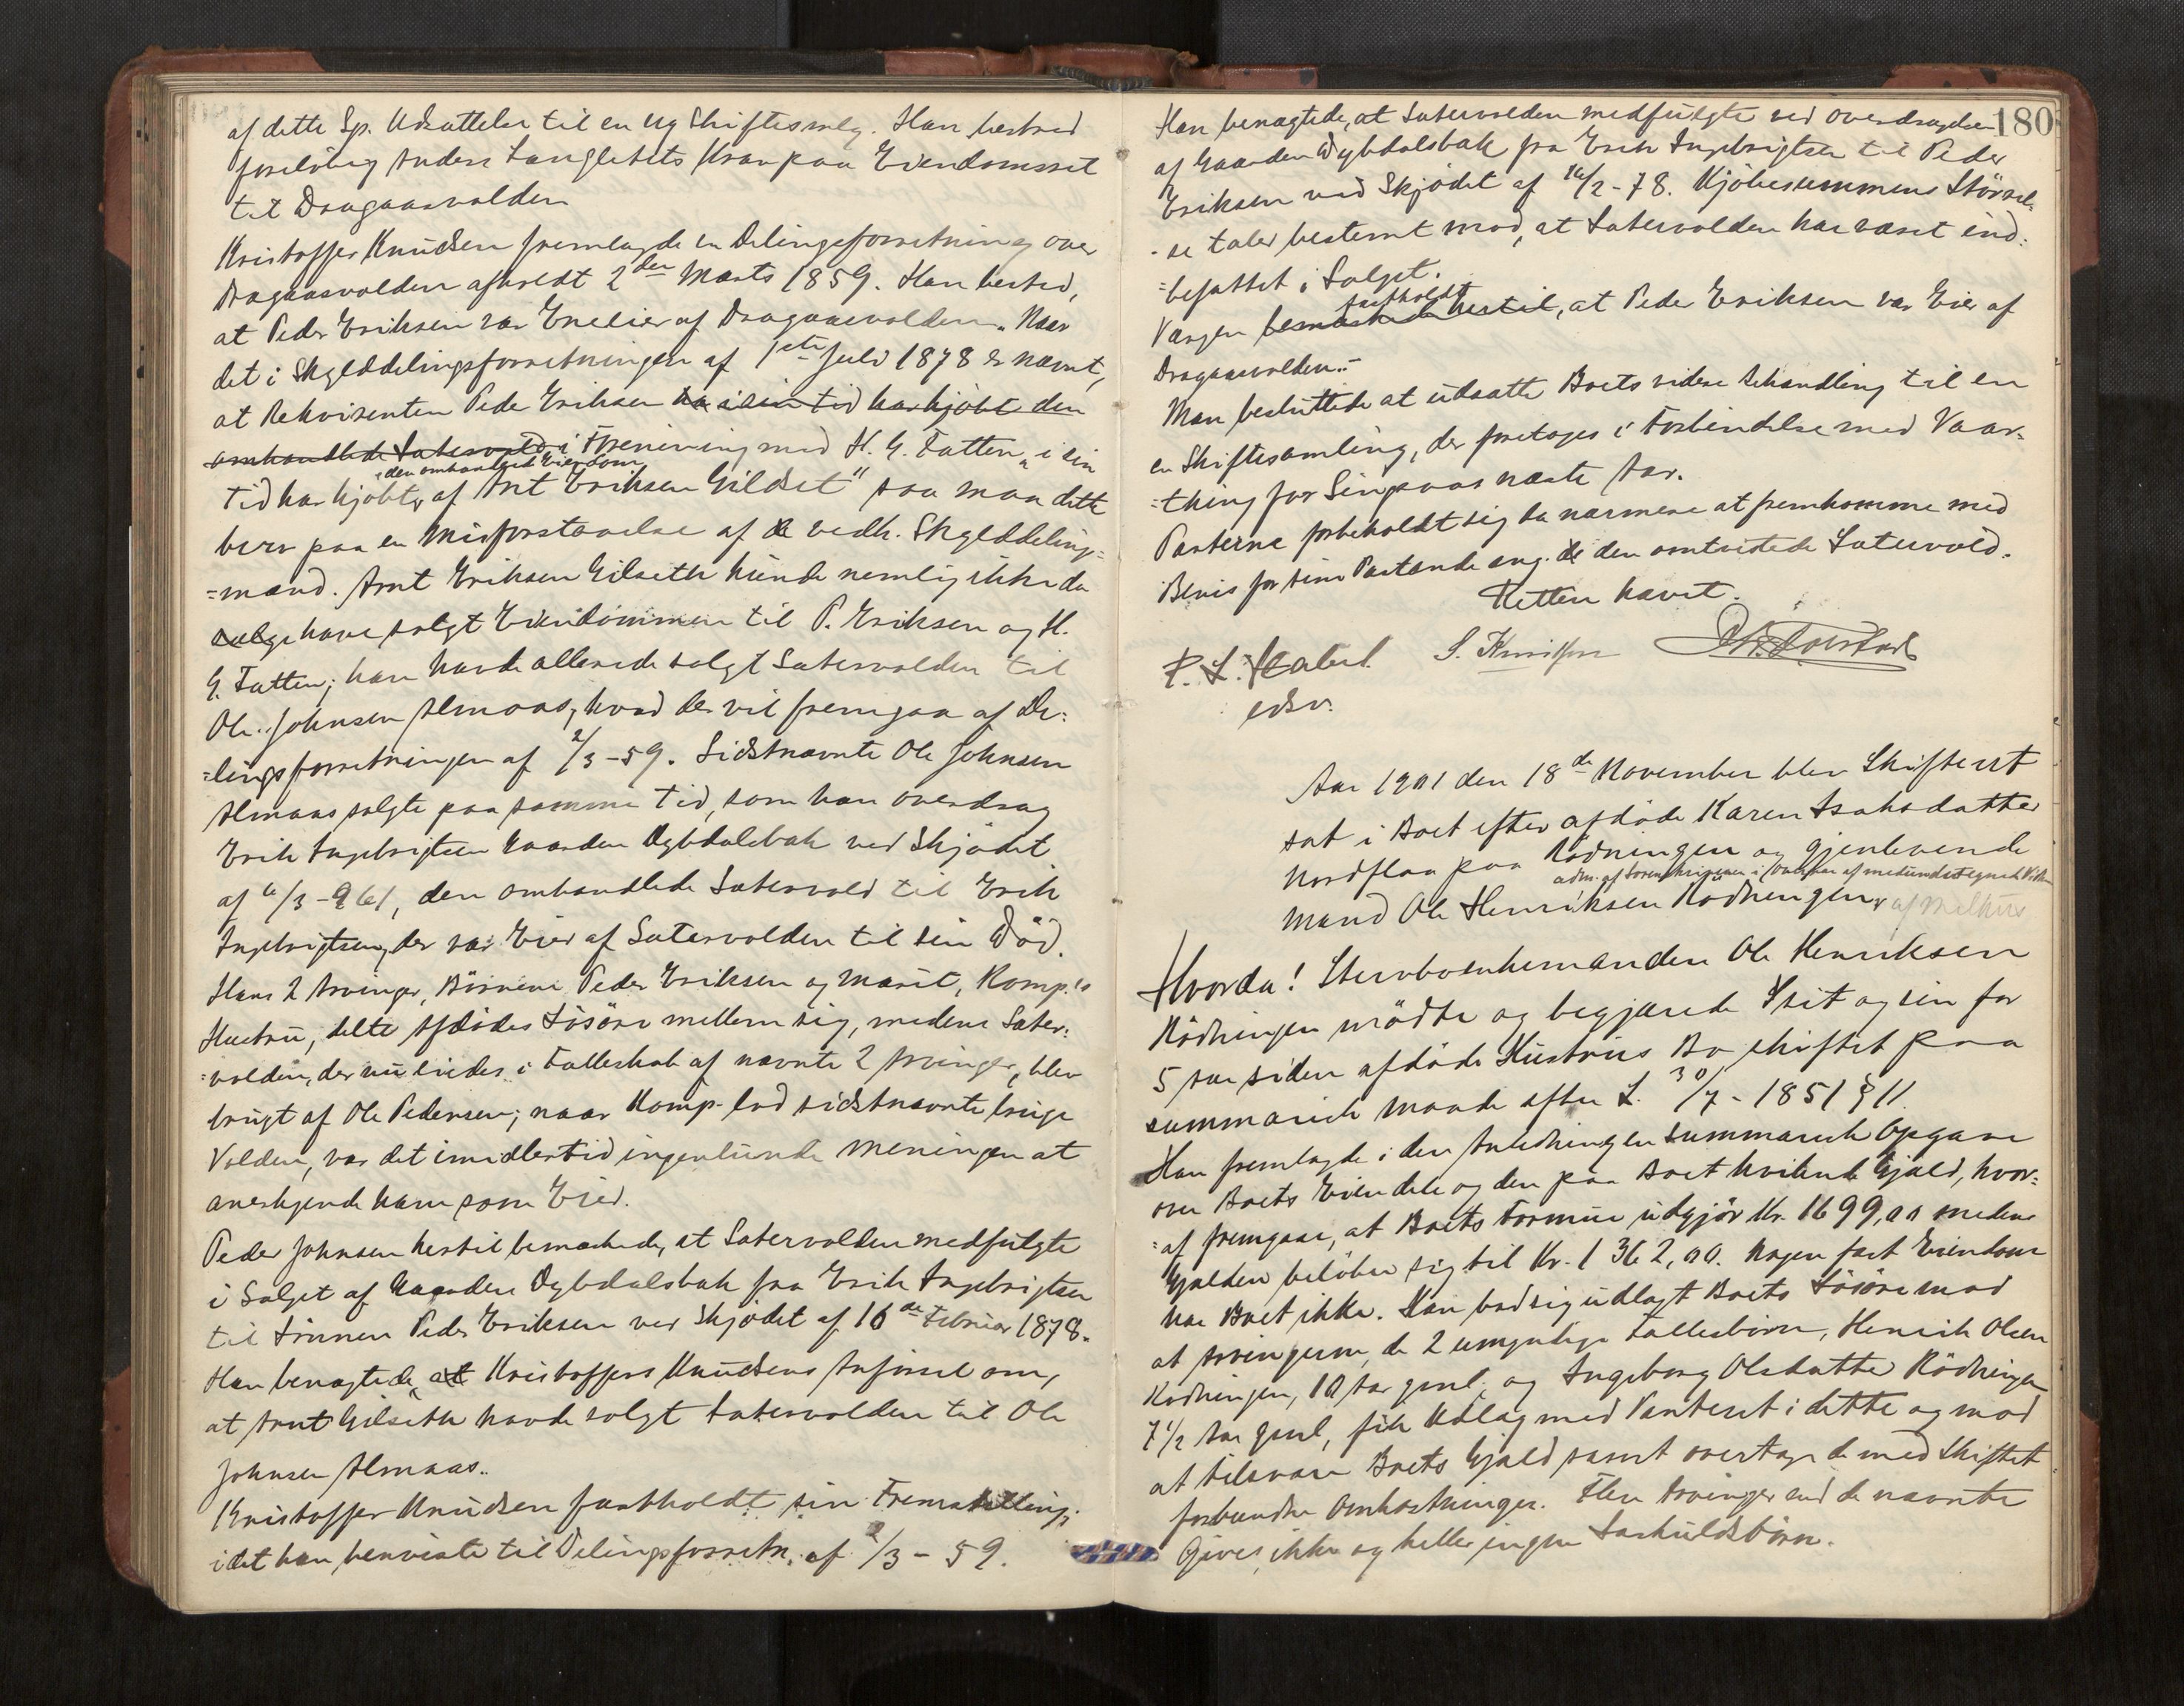 af dette Sp. Udsættelse til en ny Skiftesmlg. Han bestred
foreløbig Anders Langletets Krav paa Eiendomsret
til Dragaasvolden
Kristoffer Knudsen fremlagde en Delingsforretning over
Dragaasvolden afholdt 2den Marts 1859. Han bestred,
at Peder Eriksen var Eneeier af Dragaasvolden. Naar
det i Skylddelingsforretningen af 1ste Juli 1878 er nævnt,
at Rekvirenten Peder Eriksen i sin tid har kjøbt den
omhandlede Sætervold i Forening med H. G. Tatten "i sin
den omhandlede Eiendom
Tid har kjøbt af Arnt Eriksen Gildset" saa maa dette
bero paa en Misforstaaelse af de vedk. Skylddelings=
=mænd. Arnt Eriksen Gilseth kunde nemlig ikke da
sælge have solgt Eiendommen til P. Eriksen og H.
G. Tatten; han havde allerede solgt Sætervolden til
Ole Johnsen Almaas, hvad der vil fremgaa af De=
=lingsforretningen af 2/3-59. Sidstnævnte Ole Johnsen
Almaas solgte paa samme Tid, som han overdrag
Erik Ingebrigtsen Gaarden Dybdalsbak ved Skjødet
af 6/3-61, den omhandlede Sætervold til Erik
Ingebrigtsen, der var Eier af Sætervolden til sin Død.
Hans 2 Arvinger, Börnene Peder Eriksen og Marit, Komp.'s
Hustru, delte Afdødes Løsøre mellem sig, medens Sæter=
=volden, der nu eiedes i Fælleskab af nævnte 2 Arvinger, blev
brugt af Ole Pedersen; naar Komp. lod sidstnævnte bruge
Volden, var det imidlertid ingenlunde Meningen at
anerkjende ham som Eier.
Peder Johnsen hertil bemærkede, at Sætervolden medfulgte
i Salget af Gaarden Dybdalsbak fra Erik Ingebrigtsen
til Sønnen Peder Eriksen ved Skjødet af 16de Februar 1878.
Han benægtede, at Kristoffers Knudsens Anførsel om,
at Arnt Gilseth havde solgt Sætervolden til Ole
Johnsen Almaas.
Kristoffer Knudsen fastholdt sin Fremstilling;
idet han henviste til Delingsforretn. af 2/3-59.
180
Han benægtede, at Sætervolden medfulgte ved Overdragelsen
af Gaarden Dybdalsbak fra Erik Ingebrigtsen til Peder
Eriksen ved Skjødet af 16/2-78. Kjøbesummens Størrel=
-se taler bestemt mod, at Sætervolden har været ind=
=befattet i Salget.
fastholdt
Værgen bemærkede hertil, at Peder Eriksen var Eier af
Dragaasvolden.
Man besluttede at udsætte Boets videre Behandling til en
en Skiftesamling, der foretages i Forbindelse med Vaar=
=thing for Singsaas næste Aar.
Parterne forbeholdt sig da nærmere at fremkomme med
Bevis for sine Paastande ang. de den omtvistede Sætervold.
Retten hævet.
P. L. S. Knudsen
edsv.
Aar 1901 den 18de November blev Skifteret
sat i Boet efter afdøde Karen Isaksdatter
Nordflaa paa Rødningen og gjenlevende
adm. af Sorenskriveren i Overvær af medundertegnede Vidne
Mand Ole Henriksen Rødningen af Melhus
Hvorda! Stervboenkemanden Ole Henriksen
Rødningen mødte og begjærede Sit og sin for
5 Aar siden afdøde Hustrus Bo skiftet paa
summarisk Maade efter L. 30/7-1851 § 11.
Han fremlagde i den Anledning en summarisk Opgave
over Boets Eiendele og den paa Boet hvilende Gjæld, hvor=
=af fremgaar, at Boets Formue udgjør Kr. 1699,00 medens
Gjælden beløber sig til Kr. 1362,00. Nogen fast Eiendom
har Boet ikke. Han bad sig udlagt Boets Løsøre mod
at Arvingerne, de 2 umyndige Fællesbørn, Henrik Olsen
Rødningen, 10 Aar gml. og Ingeborg Olsdatter Rødningen
7 1/2 Aar gml, fik Udlæg med Panteret i dette og mod
at tilsvare Boets Gjæld samt overtage de med Skiftet
forbundne Omkostninger. Flere Arvinger end de nævnte
Gives ikke og heller ingen Særkuldsbørn.